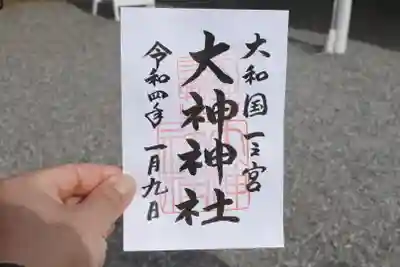 大和国一之宮
大神神社
令和四年 一月九日